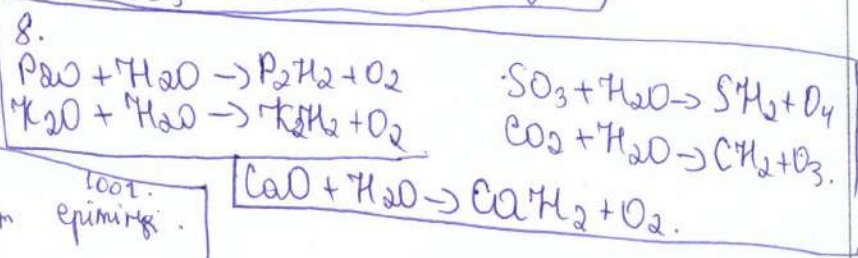 8.
P2O + H2O -> P2H2 + O2
K2O + H2O -> K2H2 + O2
SO3 + H2O -> SH2 + O4
CO2 + H2O -> CH2 + O3.
CaO + H2O -> CaH2 + O2.